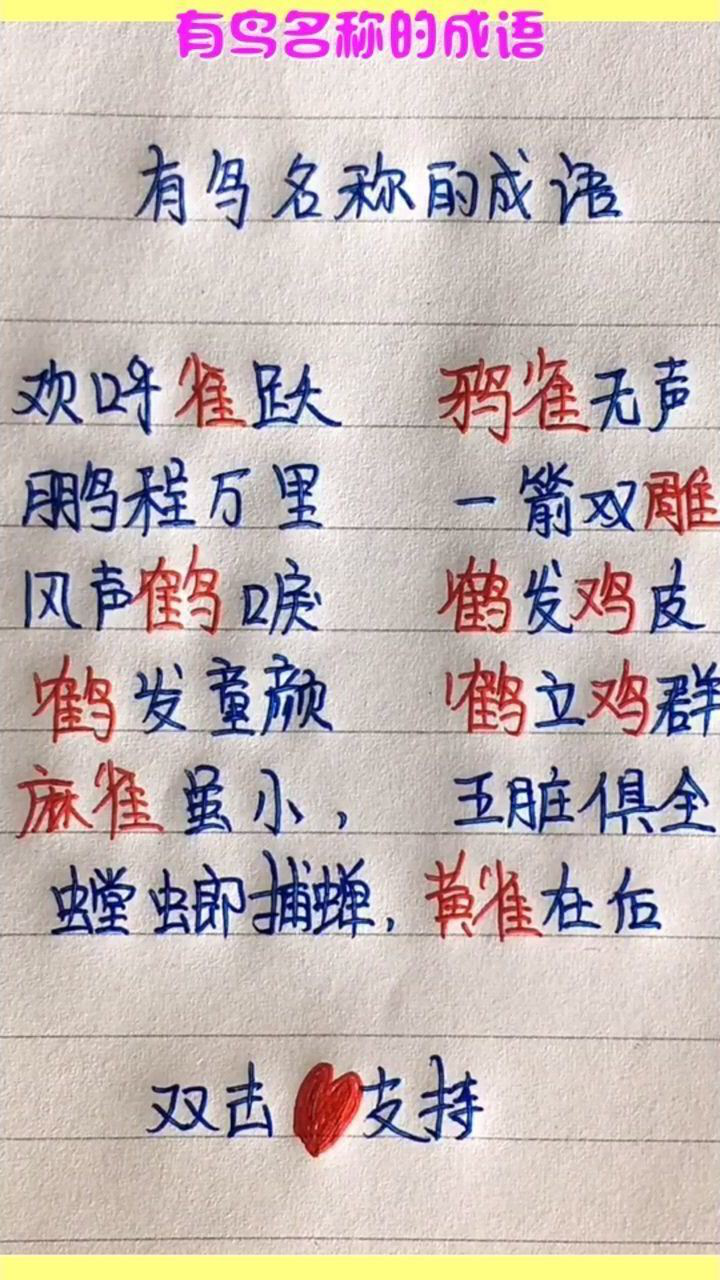 有鸟名称的成语
有鸟名称的成语
欢呼雀跃 鸦雀无声
鹏程万里 一箭双雕
风声鹤唳 鹤发鸡皮
鹤发童颜 鹤立鸡群
麻雀虽小， 五脏俱全
螳螂捕蝉，黄雀在后
双击 支持